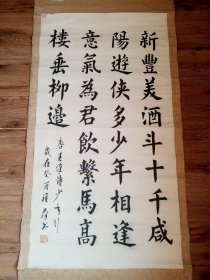 新豐美酒斗十千咸
陽遊俠多少年相逢
意氣為君飲繫馬高
樓垂柳邊
唐王維詩少年行
歲在癸酉